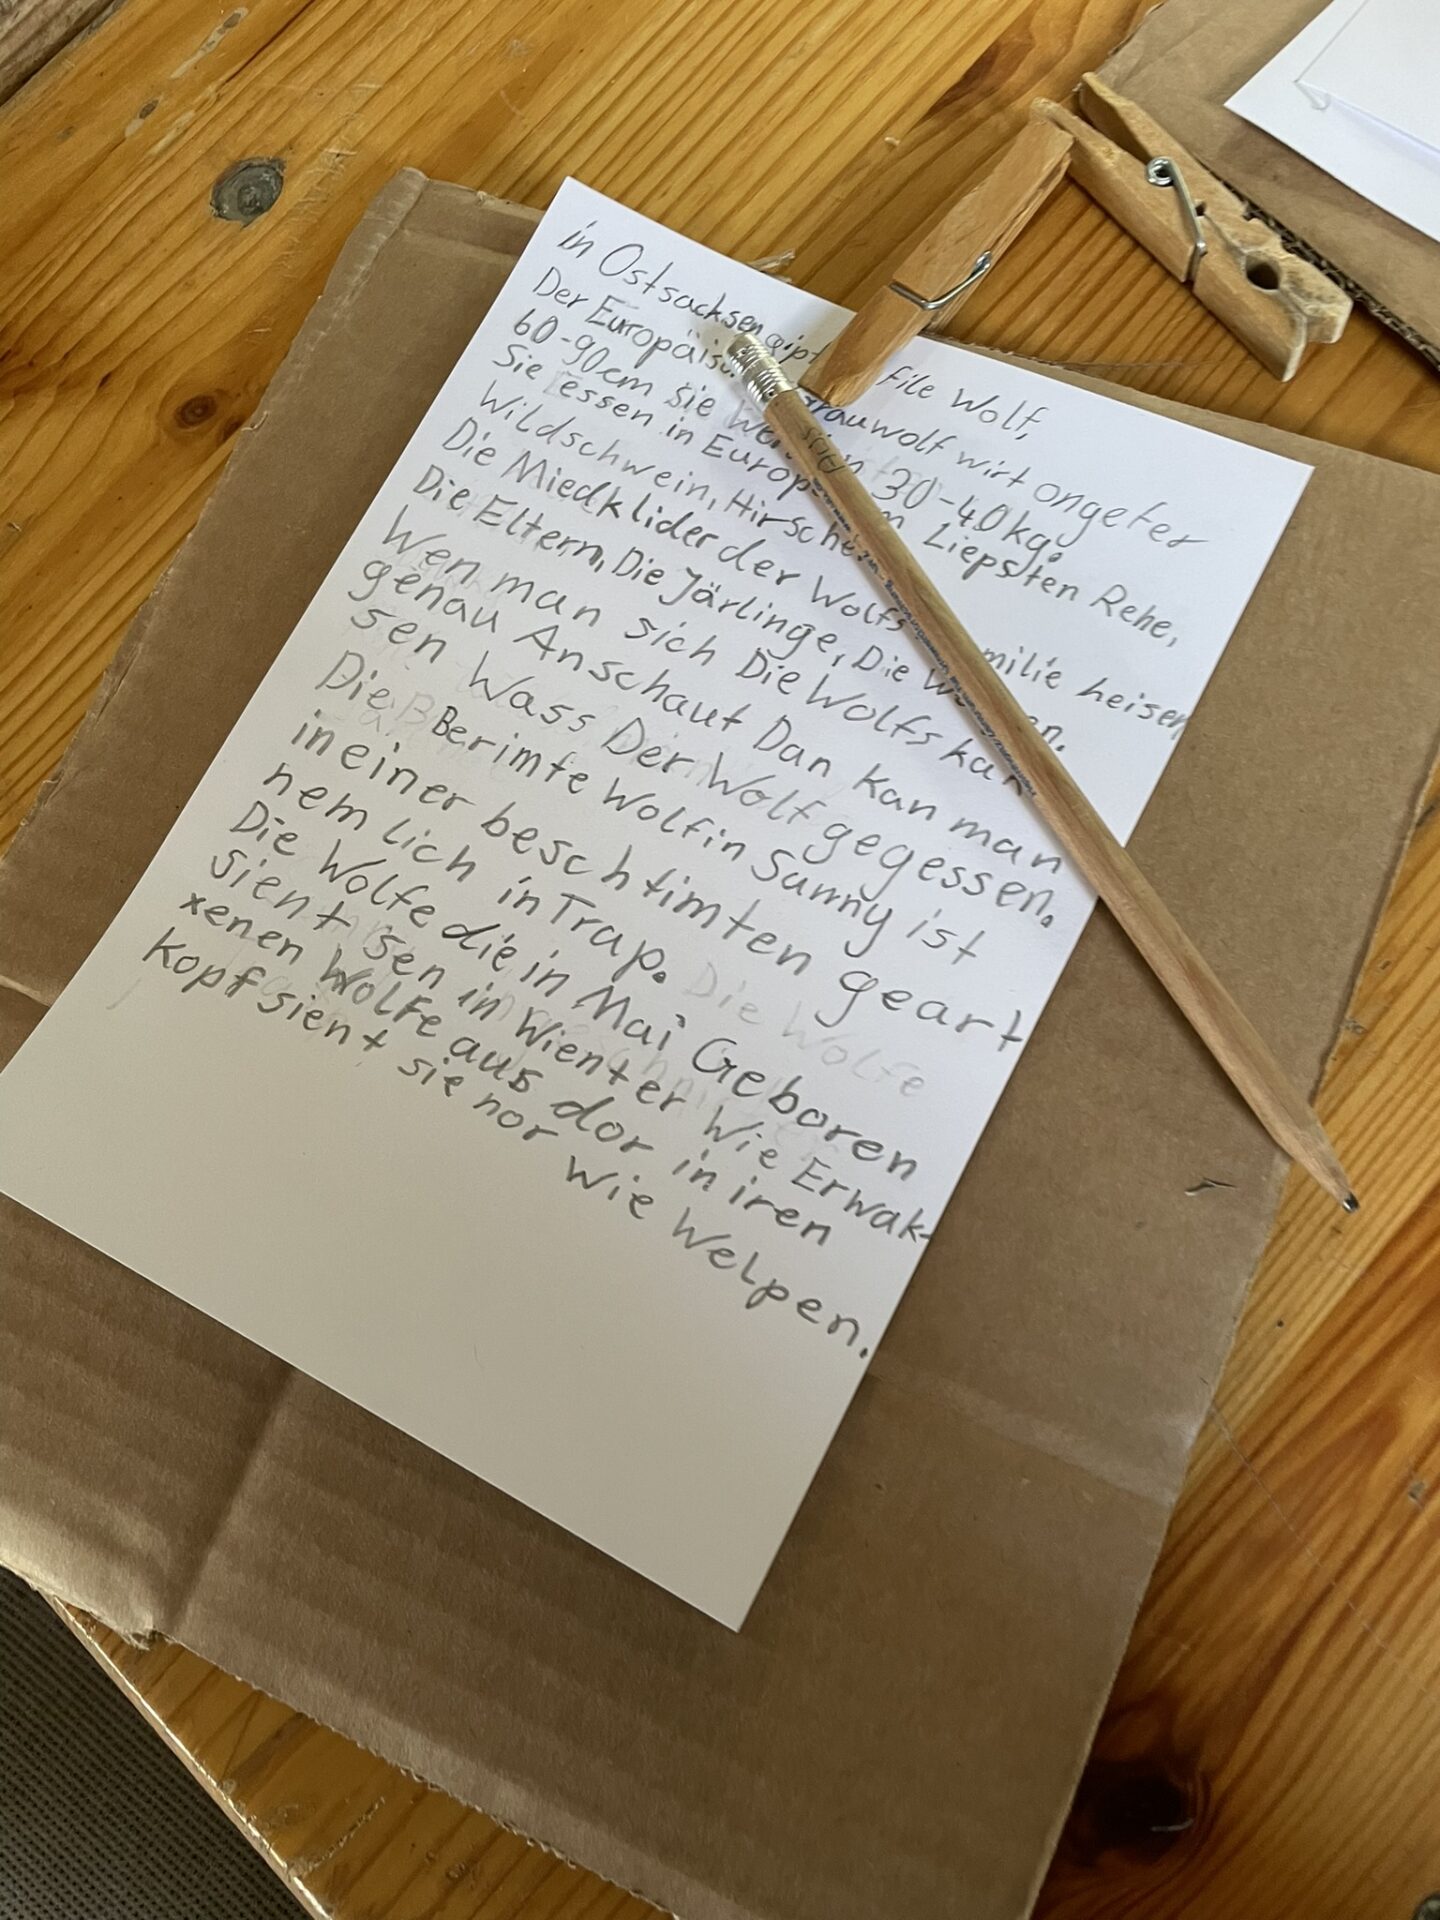 in Ostsacksen gipt file Wolf,
Der Europäisc Grauwolf wirt ongefer
60-90cm sie wer 30-40kg.
Sie essen in Europ Liepsten Rehe,
Wildschwein, Hirsche
Die Miedklider der Wolfs milie heisen
Die Eltern, Die Järlinge, Die en.
Wen man sich Die Wolfs kak
genau Anschaut Dan kan man
sen Wass Der Wolf gegessen.
Die Berimte Wolfin Sunny ist
in einer beschtimten geart
nemlich in Trap. Die Wolfe
Die Wolfe die in Mai Geboren
sient sen in Wienter Wie Erwak-
xenen Wolfe aus dor in iren
Kopf sient sie nor Wie Welpen.